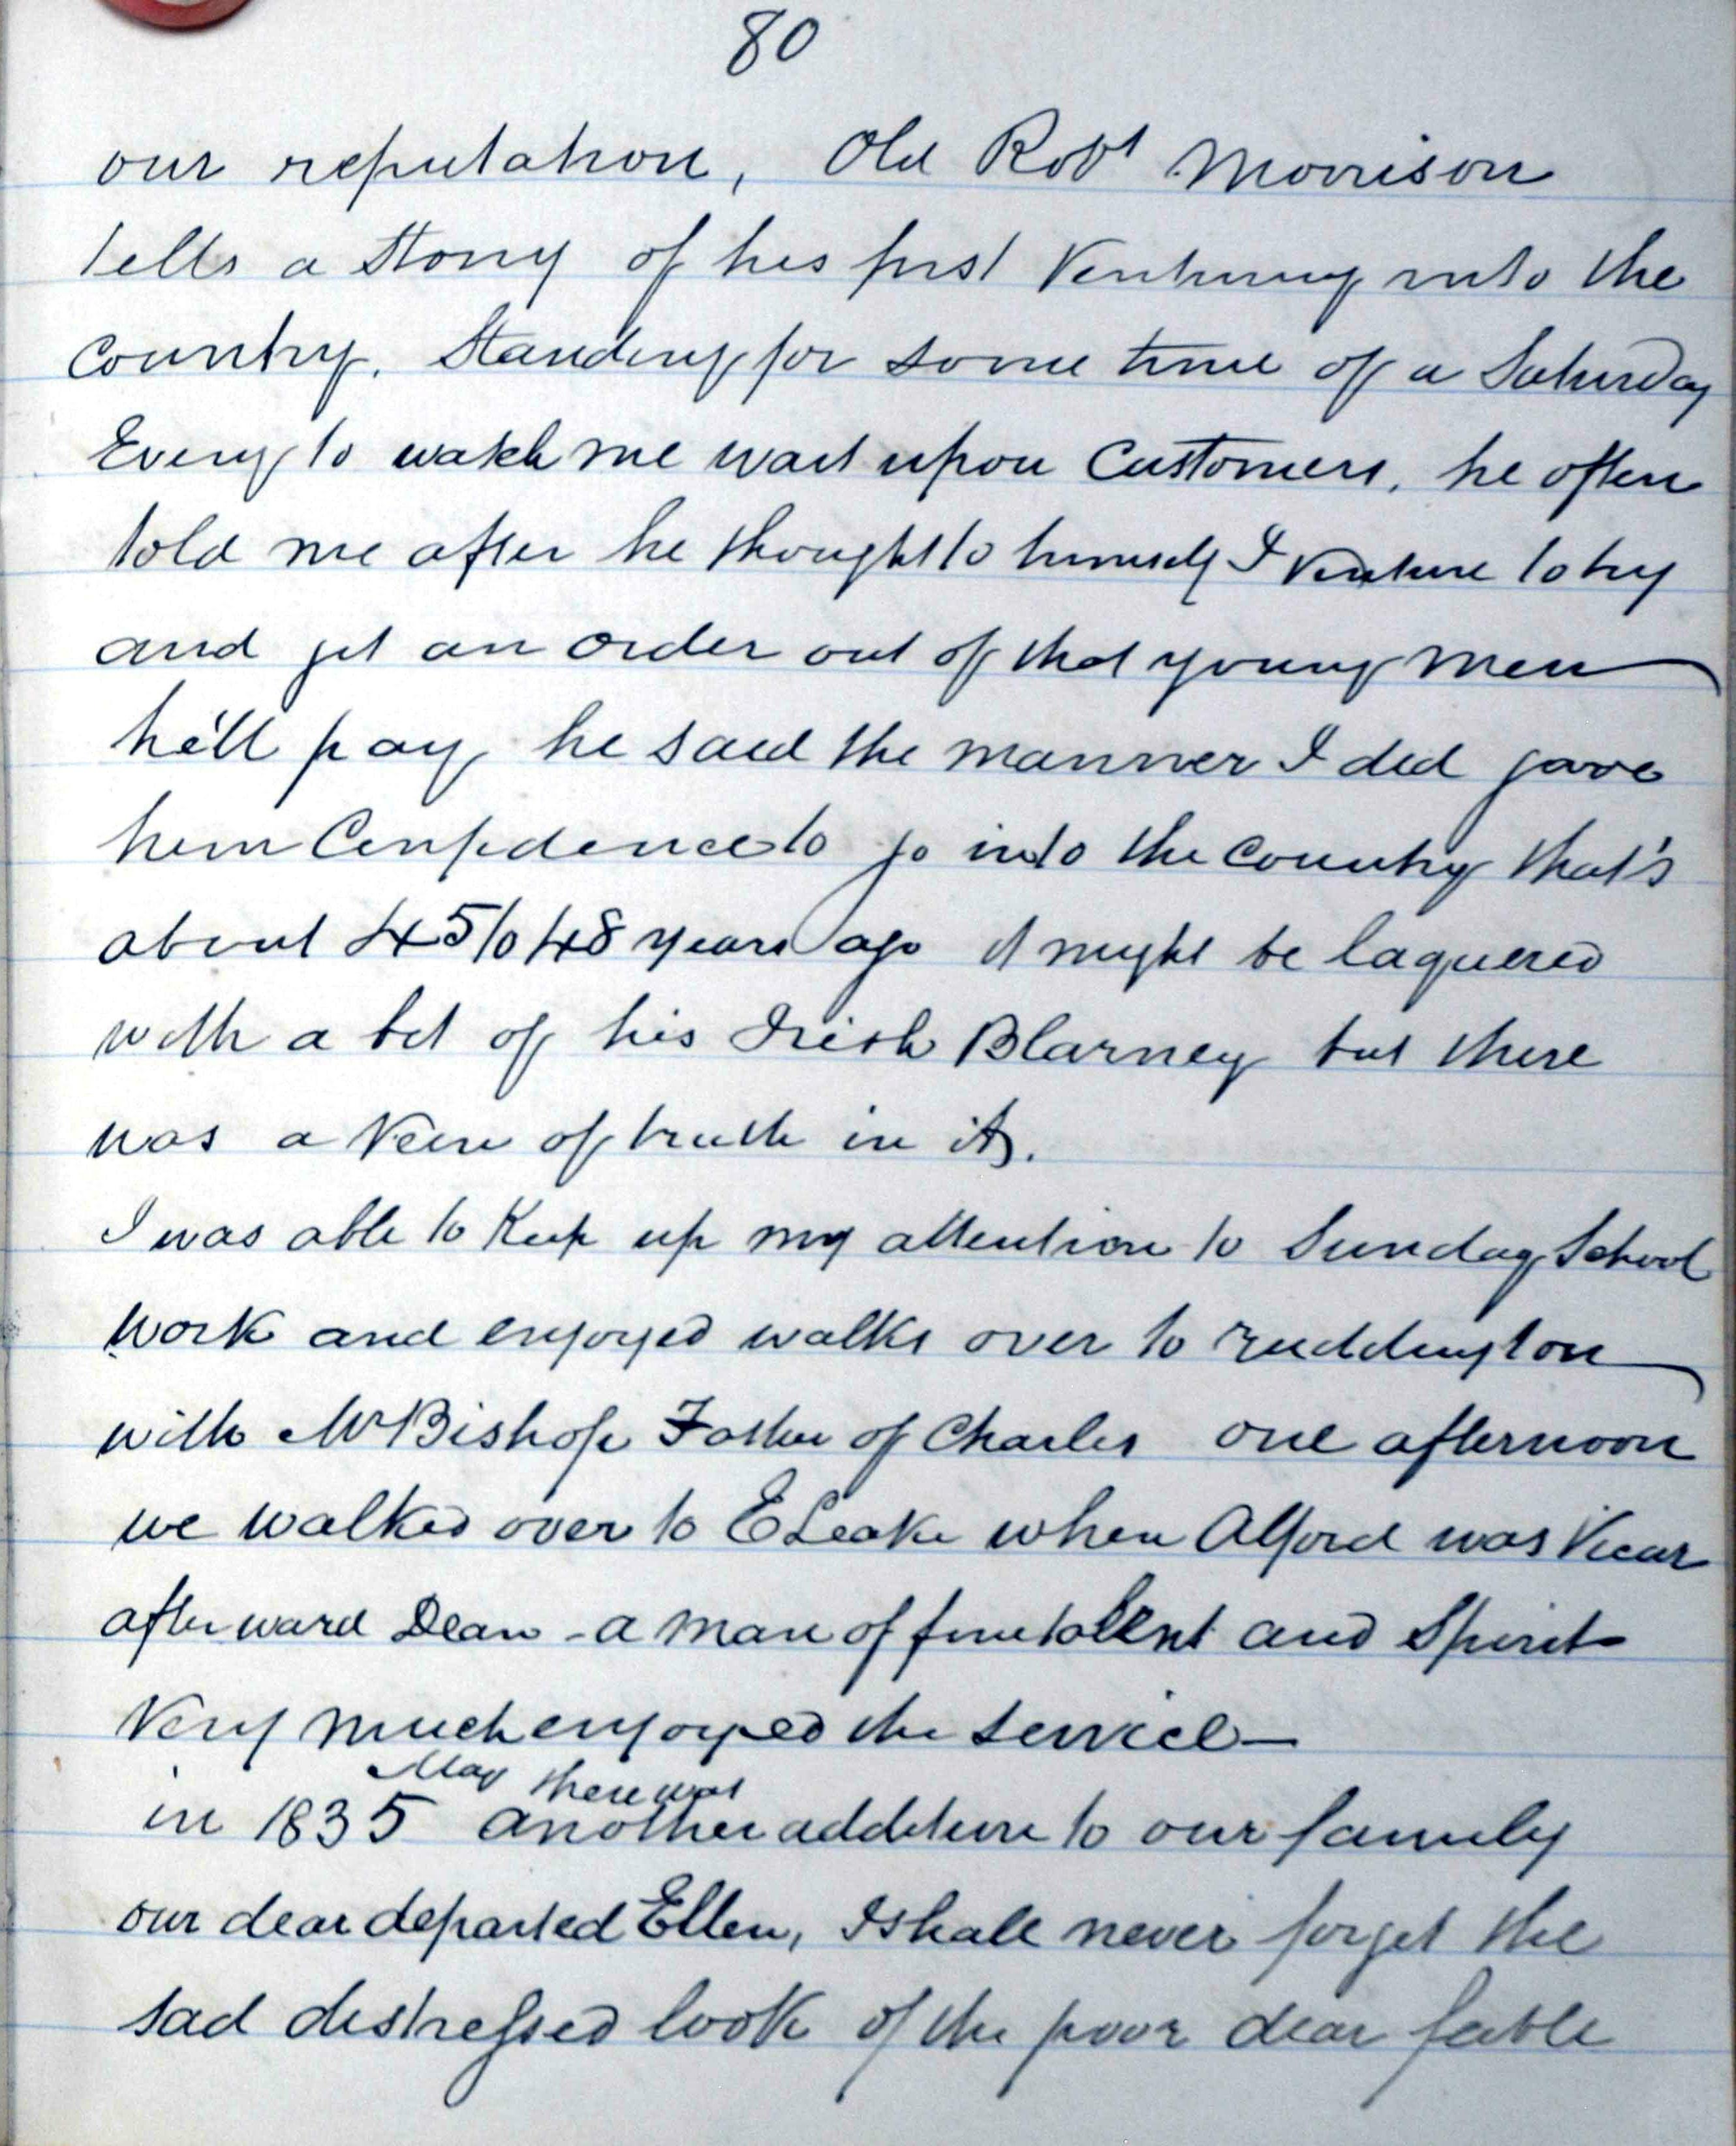 80
our reputation, Old Robt Morrison
tells a Story of his first Venturing into the
Country. Standing for some time of a Saturday
Eveng to watch me wait upon Customers, he often
told me after he thought to himself I Venture to try
and get an order out of that young Man
he'll pay, he said the manner I did gave
him Confidence to go into the Country that's
about 45 to 48 years ago it might be laquered
with a bit of his Irish Blarney but there
was a Vein of truth in it.
I was able to Keep up my attention to Sunday School
work and enjoyed walks over to Ruddington
with Mr Bishop Father of Charles one afternoon
we walked over to E Leake when Alford was Vicar
afterward Dean - a man of fine talent and Spirit
Very much enjoyed the service -
May there was
in 1835 another addition to our family
our dear departed Ellen, I shall never forget the
sad distressed look of the poor dear feeble